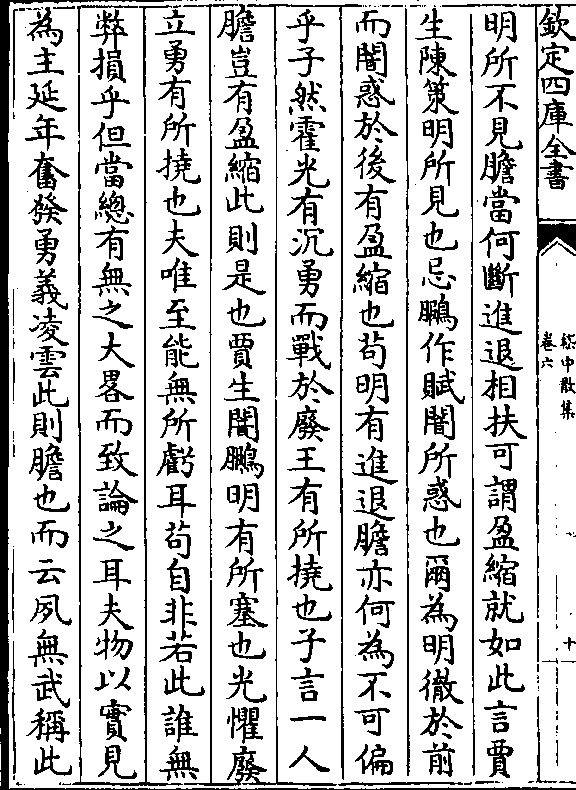 欽定四庫全書
嵇中散集
卷六
十
明所不見膽當何斷進退相扶可謂盈縮就如此言賈
生陳䇿明所見也忌鵩作賦闇所惑也爾為明徹於前
而闇惑於後有盈縮也茍明有進退膽亦何為不可偏
乎子然霍光有沉勇而戰於廢王有所撓也子言一人
膽豈有盈縮此則是也賈生闇鵩明有所塞也光懼廢
立勇有所撓也夫唯至能無所虧耳茍自非若此誰無
弊損乎但當總有無之大畧而致論之耳夫物以實見
為主延年奮發勇義凌雲此則膽也而云夙無武稱此